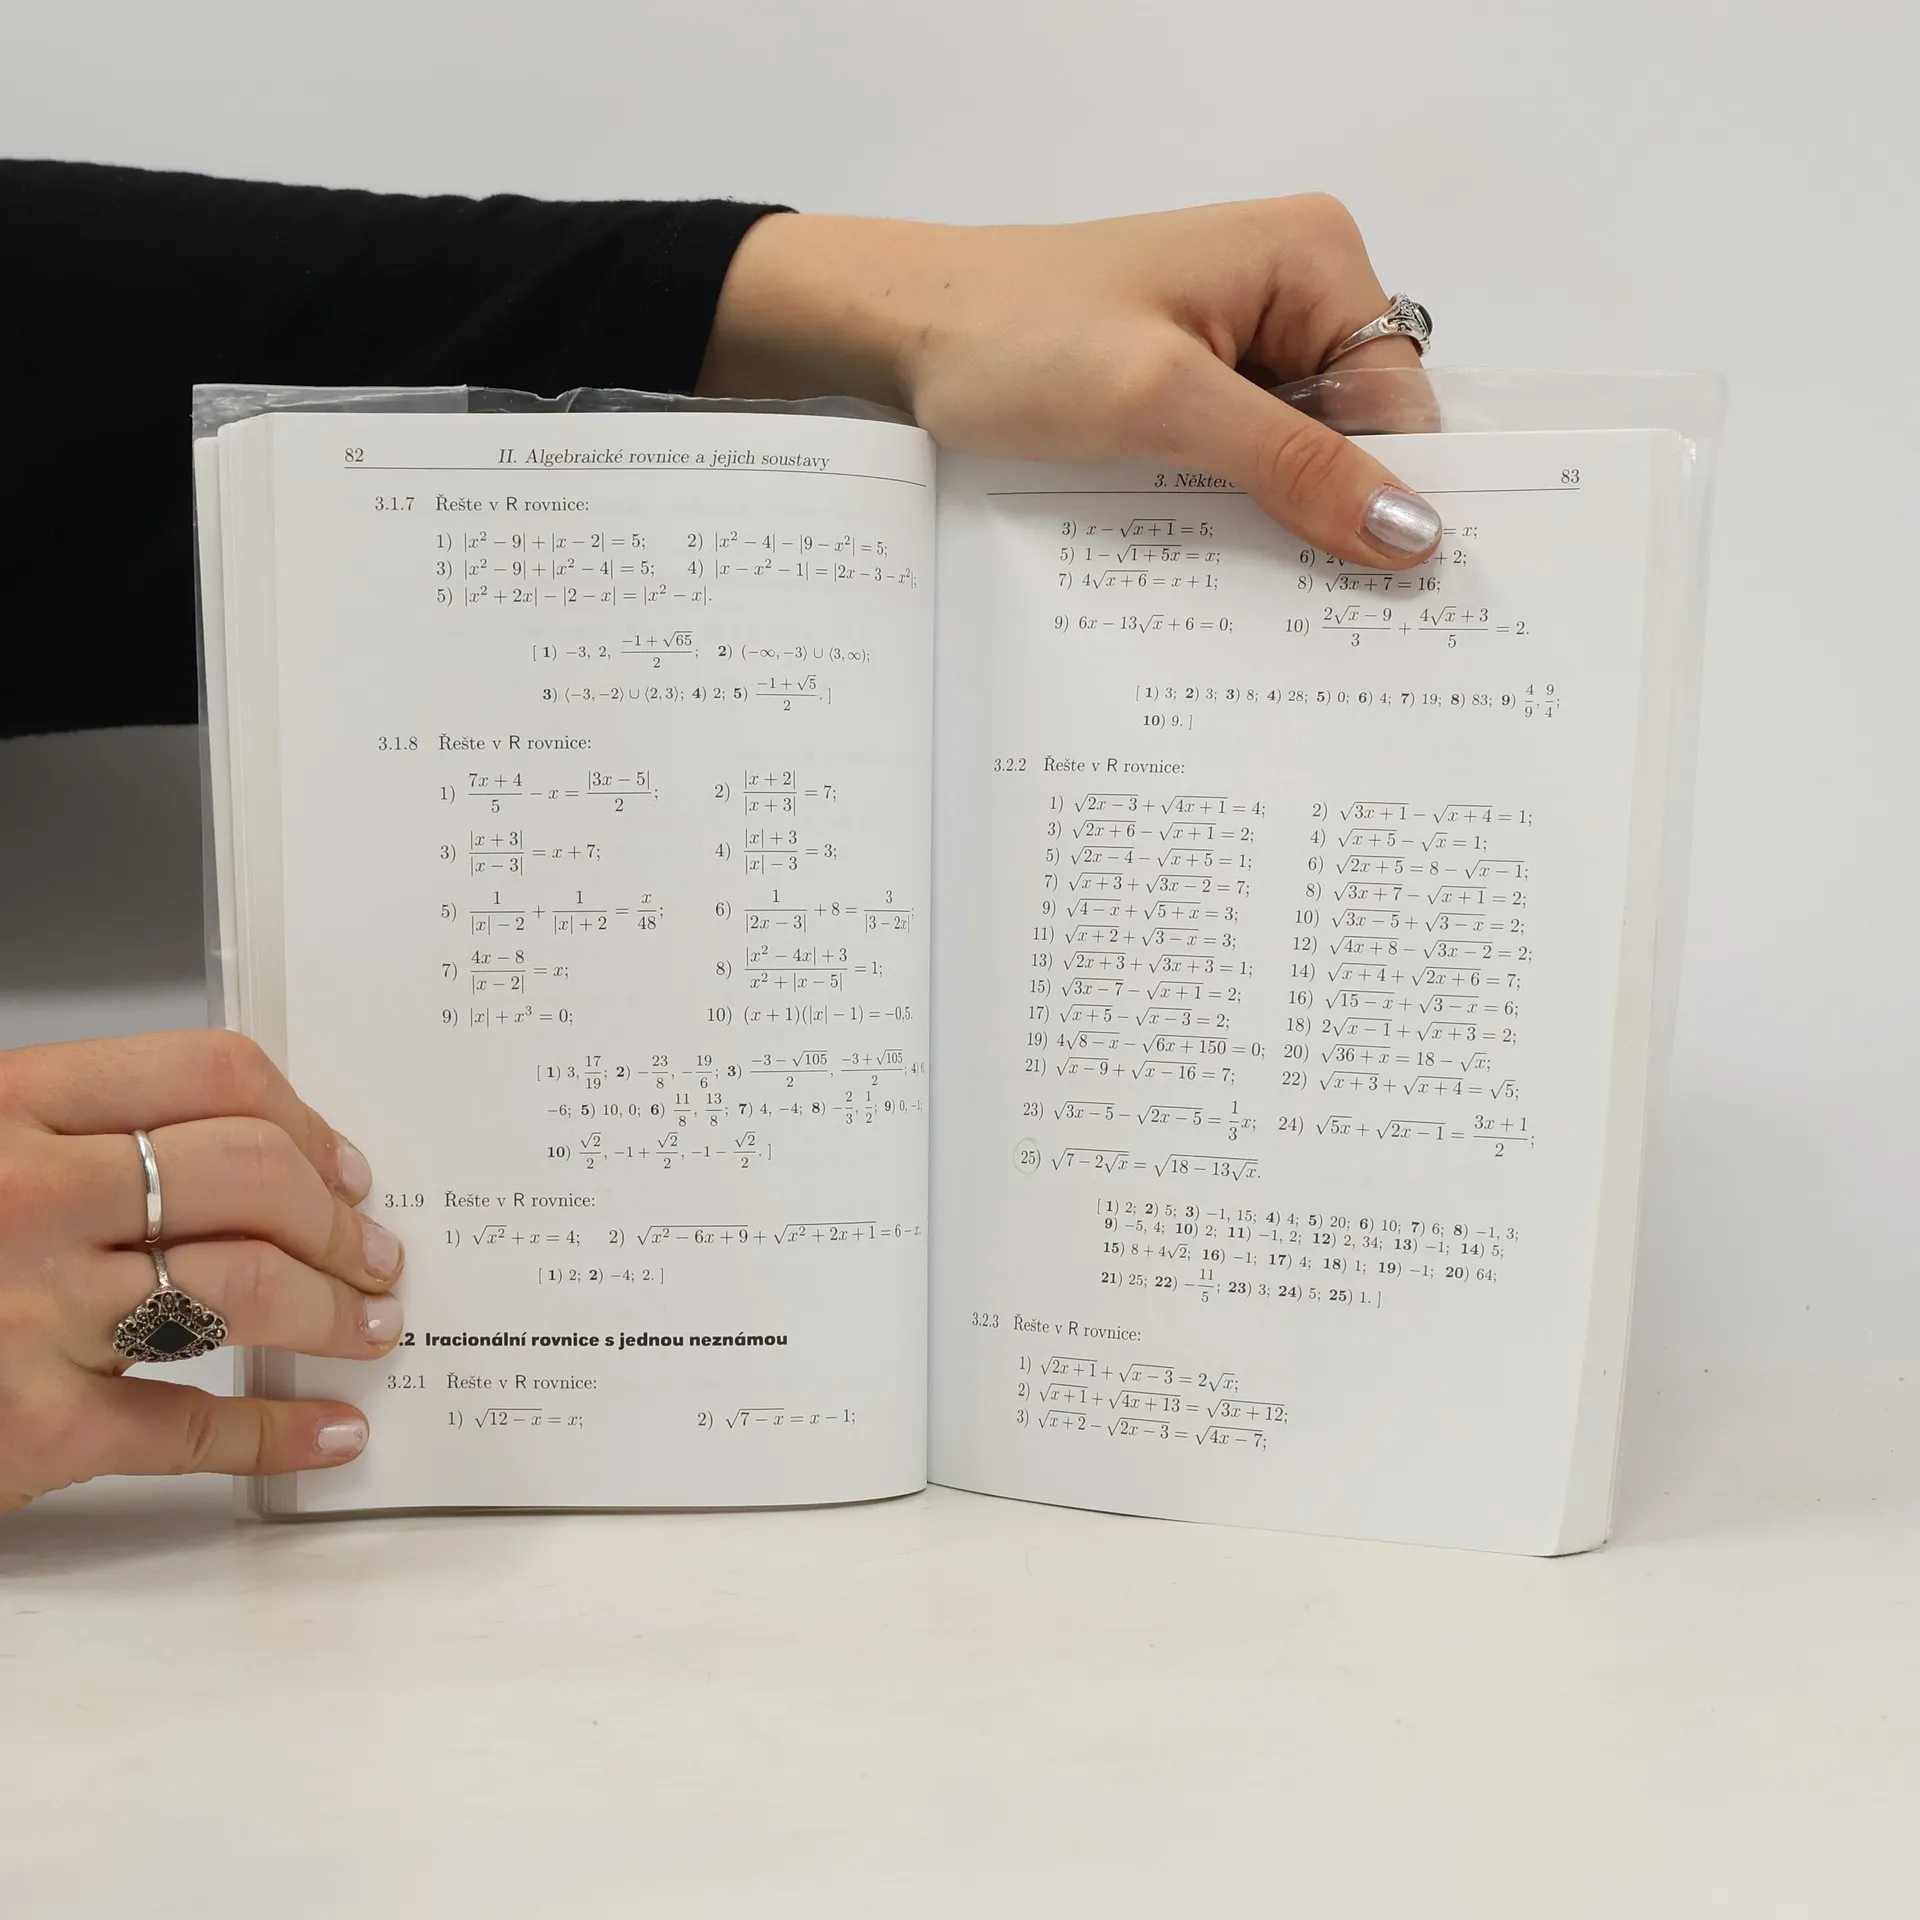 82 II. Algebraické rovnice a jejich soustavy
3.1.7 Řešte v R rovnice:
1) |x² − 9| + |x − 2| = 5; 2) |x² − 4| − |9 − x²| = 5;
3) |x² − 9| + |x² − 4| = 5; 4) |x − x² − 1| = |2x − 3 − x²|;
5) |x² + 2x| − |2 − x| = |x² − x|.
[ 1) −3, 2, (−1 + √65)/2; 2) (−∞, −3⟩ ∪ ⟨3, ∞);
3) ⟨−3, −2⟩ ∪ ⟨2, 3⟩; 4) 2; 5) (−1 + √5)/2. ]
3.1.8 Řešte v R rovnice:
1) (7x + 4)/5 − x = |3x − 5|/2; 2) |x + 2|/|x + 3| = 7;
3) |x + 3|/|x − 3| = x + 7; 4) (|x| + 3)/(|x| − 3) = 3;
5) 1/(|x| − 2) + 1/(|x| + 2) = x/48; 6) 1/|2x − 3| + 8 = 3/|3 − 2x|;
7) (4x − 8)/|x − 2| = x; 8) (|x² − 4x| + 3)/(x² + |x − 5|) = 1;
9) |x| + x³ = 0; 10) (x + 1)(|x| − 1) = −0,5.
[ 1) 3, 17/19; 2) −23/8, −19/6; 3) (−3 − √105)/2, (−3 + √105)/2; 4)
−6; 5) 10, 0; 6) 11/8, 13/8; 7) 4, −4; 8) −2/3, 1/2; 9) 0, −1;
10) √2/2, −1 + √2/2, −1 − √2/2. ]
3.1.9 Řešte v R rovnice:
1) √(x²) + x = 4; 2) √(x² − 6x + 9) + √(x² + 2x + 1) = 6 − x.
[ 1) 2; 2) −4; 2. ]
.2 Iracionální rovnice s jednou neznámou
3.2.1 Řešte v R rovnice:
1) √(12 − x) = x; 2) √(7 − x) = x − 1;
3. 83
3) x − √(x + 1) = 5; = x;
5) 1 − √(1 + 5x) = x; 6) 2√ + 2;
7) 4√(x + 6) = x + 1; 8) √(3x + 7) = 16;
9) 6x − 13√x + 6 = 0; 10) (2√x − 9)/3 + (4√x + 3)/5 = 2.
[ 1) 3; 2) 3; 3) 8; 4) 28; 5) 0; 6) 4; 7) 19; 8) 83; 9) 4/9, 9/4;
10) 9. ]
3.2.2 Řešte v R rovnice:
1) √(2x − 3) + √(4x + 1) = 4; 2) √(3x + 1) − √(x + 4) = 1;
3) √(2x + 6) − √(x + 1) = 2; 4) √(x + 5) − √x = 1;
5) √(2x − 4) − √(x + 5) = 1; 6) √(2x + 5) = 8 − √(x − 1);
7) √(x + 3) + √(3x − 2) = 7; 8) √(3x + 7) − √(x + 1) = 2;
9) √(4 − x) + √(5 + x) = 3; 10) √(3x − 5) + √(3 − x) = 2;
11) √(x + 2) + √(3 − x) = 3; 12) √(4x + 8) − √(3x − 2) = 2;
13) √(2x + 3) + √(3x + 3) = 1; 14) √(x + 4) + √(2x + 6) = 7;
15) √(3x − 7) − √(x + 1) = 2; 16) √(15 − x) + √(3 − x) = 6;
17) √(x + 5) − √(x − 3) = 2; 18) 2√(x − 1) + √(x + 3) = 2;
19) 4√(8 − x) − √(6x + 150) = 0; 20) √(36 + x) = 18 − √x;
21) √(x − 9) + √(x − 16) = 7; 22) √(x + 3) + √(x + 4) = √5;
23) √(3x − 5) − √(2x − 5) = 1/3 x; 24) √(5x) + √(2x − 1) = (3x + 1)/2;
25) √(7 − 2√x) = √(18 − 13√x).
[ 1) 2; 2) 5; 3) −1, 15; 4) 4; 5) 20; 6) 10; 7) 6; 8) −1, 3;
9) −5, 4; 10) 2; 11) −1, 2; 12) 2, 34; 13) −1; 14) 5;
15) 8 + 4√2; 16) −1; 17) 4; 18) 1; 19) −1; 20) 64;
21) 25; 22) −11/5; 23) 3; 24) 5; 25) 1. ]
3.2.3 Řešte v R rovnice:
1) √(2x + 1) + √(x − 3) = 2√x;
2) √(x + 1) + √(4x + 13) = √(3x + 12);
3) √(x + 2) − √(2x − 3) = √(4x − 7);